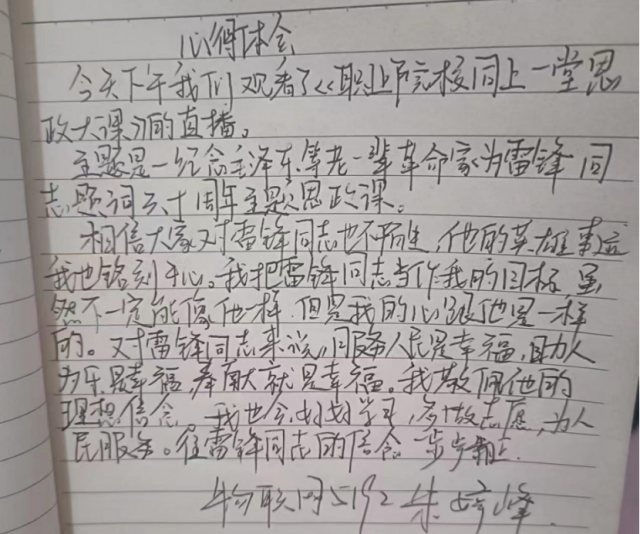 心得体会
今天下午我们观看了《职业院校同上一堂思
政大课》的直播。
主题是一纪念毛泽东等老一辈革命家为雷锋同
志题词六十周年主题思政课。
相信大家对雷锋同志也不陌生,他的英雄事迹
我也铭刻于心。我把雷锋同志当作我的目标 虽
然不一定能像他一样.但是我的心跟他是一样
的。对雷锋同志来说,服务人民是幸福,助人
为乐是幸福 奉献就是幸福。我敬佩他的
理想信念。我也会好好学习,多做志愿,为人
民服务。往雷锋同志的信念一步步靠近.
物联网5192 朱婷峰.